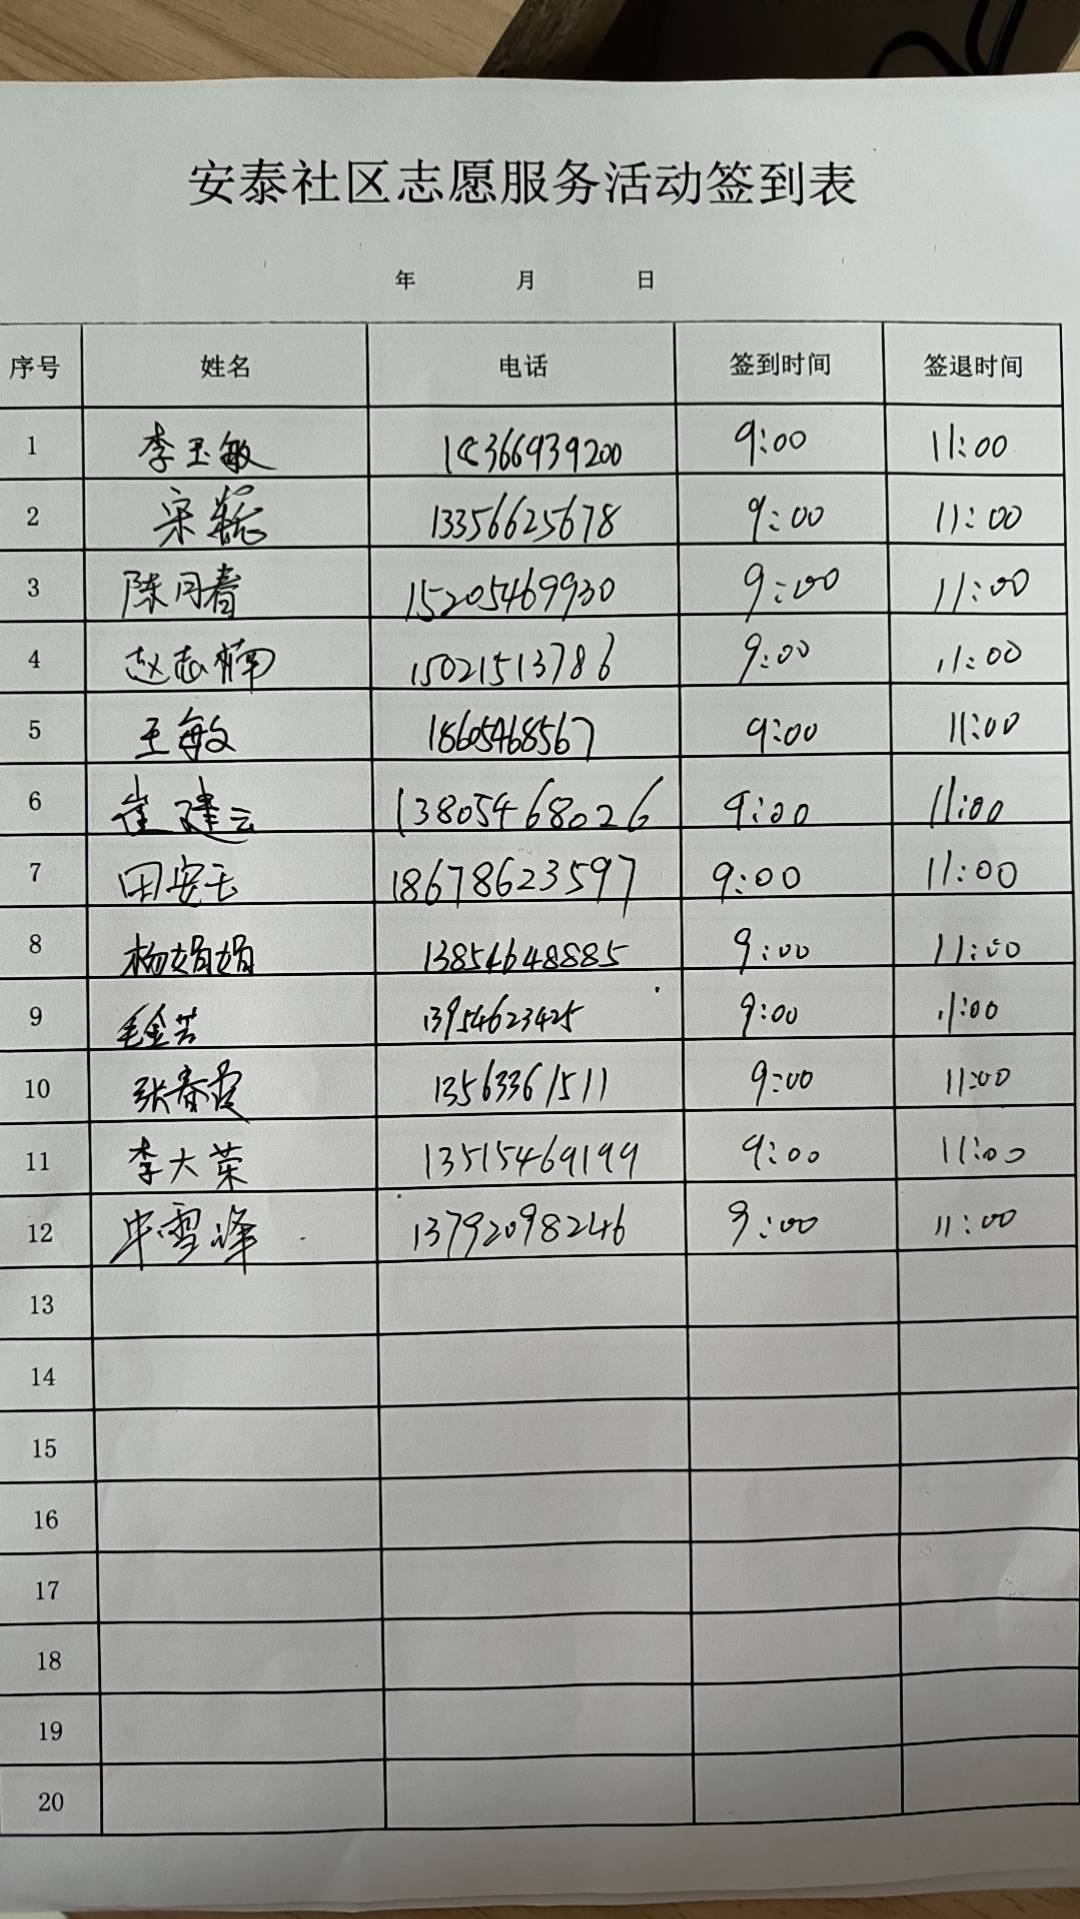 安泰社区志愿服务活动签到表
年 月 日
序号 姓名 电话 签到时间 签退时间
1 李玉敏 18366939200 9:00 11:00
2 宋 13356625678 9:00 11:00
3 陈同春 15205469930 9:00 11:00
4 赵志楠 15021513786 9:00 11:00
5 王敏 18605468567 9:00 11:00
6 崔建云 13805468026 9:00 11:00
7 田安 18678623597 9:00 11:00
8 杨娟娟 13854648885 9:00 11:00
9 毛金芸 13954623425 9:00 11:00
10 张春霞 13563361511 9:00 11:00
11 李大荣 13515469199 9:00 11:00
12 雪峰 13792098246 9:00 11:00
13
14
15
16
17
18
19
20